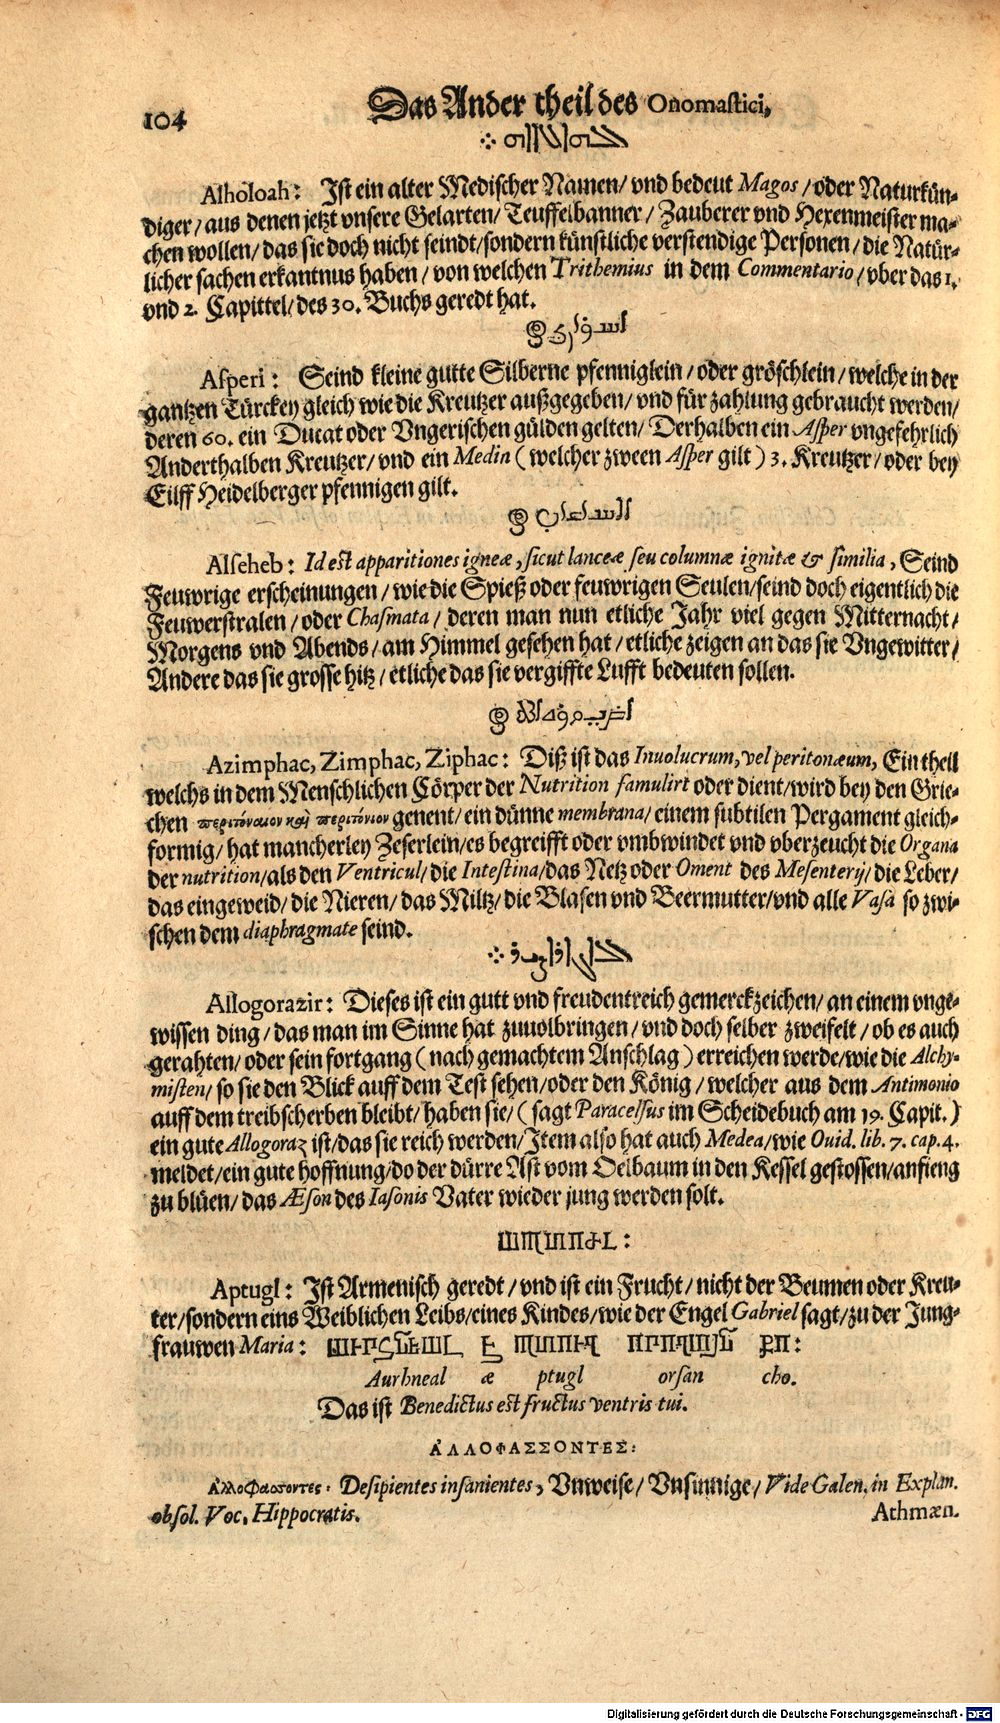 104 Das Ander theil des Onomastici,
Alholoah: Jst ein alter Medischer Namen/ vnd bedeut Magos/ oder Naturkün-
diger/ aus denen jetzt vnsere Gelarten/ Teuffelbanner/ Zauberer vnd Hexenmeister ma-
chen wollen/ das sie doch nicht seindt/ sondern künstliche verstendige Personen/ die Natür-
licher sachen erkantnus haben/ von welchen Trithemius in dem Commentario/ vber das 1.
vnd 2. Capittel/ des 30. Buchs geredt hat.
Asperi: Seind kleine gutte Silberne pfenniglein/ oder gröschlein/ welche in der
gantzen Türckey gleich wie die Kreutzer außgegeben/ vnd für zahlung gebraucht werden/
deren 60. ein Ducat oder Vngerischen gülden gelten/ Derhalben ein Asper vngefehrlich
Anderthalben Kreutzer/ vnd ein Medin (welcher zween Asper gilt) 3. Kreutzer/ oder bey
Eilff Heidelberger pfennigen gilt.
Alseheb: Id est apparitiones igneæ, sicut lanceæ seu columnæ ignitæ & similia, Seind
Feuwrige erscheinungen/ wie die Spieß oder feuwrigen Seulen/ seind doch eigentlich die
Feuwerstralen/ oder Chasmata/ deren man nun etliche Jahr viel gegen Mitternacht/
Morgens vnd Abends/ am Himmel gesehen hat/ etliche zeigen an das sie Vngewitter/
Andere das sie grosse hitz/ etliche das sie vergiffte Lufft bedeuten sollen.
Azimphac, Zimphac, Ziphac: Diß ist das Involucrum, vel peritonæum, Ein theil
welchs in dem Menschlichen Cörper der Nutrition famulirt oder dient/ wird bey den Grie-
chen περιτόναιον καὶ περιτόνιον genent/ ein dünne membrana/ einem subtilen Pergament gleich-
formig/ hat mancherley Zeserlein/ es begreifft oder vmbwindet vnd vberzeucht die Organa
der nutrition/ als den Ventricul/ die Intestina/ das Netz oder Oment des Mesenterij/ die Leber/
das eingeweid/ die Nieren/ das Miltz/ die Blasen vnd Beermutter/ vnd alle Vasa so zwi-
schen dem diaphragmate seind.
Allogorazir: Dieses ist ein gutt vnd freudentreich gemerckzeichen/ an einem vnge-
wissen ding/ das man im Sinne hat zuuolbringen/ vnd doch selber zweifelt/ ob es auch
gerahten/ oder sein fortgang (nach gemachtem Anschlag) erreichen werde/ wie die Alchy-
misten/ so sie den Blick auff dem Test sehen/ oder den König/ welcher aus dem Antimonio
auff dem treibscherben bleibt/ haben sie/ (sagt Paracelsus im Scheidebuch am 19. Capit.)
ein gute Allogoraz ist/ das sie reich werden/ Jtem also hat auch Medea/ wie Ouid. lib. 7. cap. 4.
meldet/ ein gute hoffnung/ do der dürre Ast vom Oelbaum in den Kessel gestossen/ anfieng
zu blüen/ das Æson des Iasonis Vater wieder jung werden solt.
Aptugl: Jst Armenisch geredt/ vnd ist ein Frucht/ nicht der Beumen oder Kreu-
ter/ sondern eins Weiblichen Leibs/ eines Kindes/ wie der Engel Gabriel sagt/ zu der Jung-
frauwen Maria:
Aurhneal æ ptugl orsan cho.
Das ist Benedictus est fructus ventris tui.
ΑΛΛΟΦΑΣΣΟΝΤΕΣ:
Αλλοφάσσοντες: Desipientes insanientes, Vnweise/ Vnsinnige/ Vide Galen. in Explan.
obsol. Voc. Hippocratis. Athmæn.
Digitalisierung gefördert durch die Deutsche Forschungsgemeinschaft - DFG